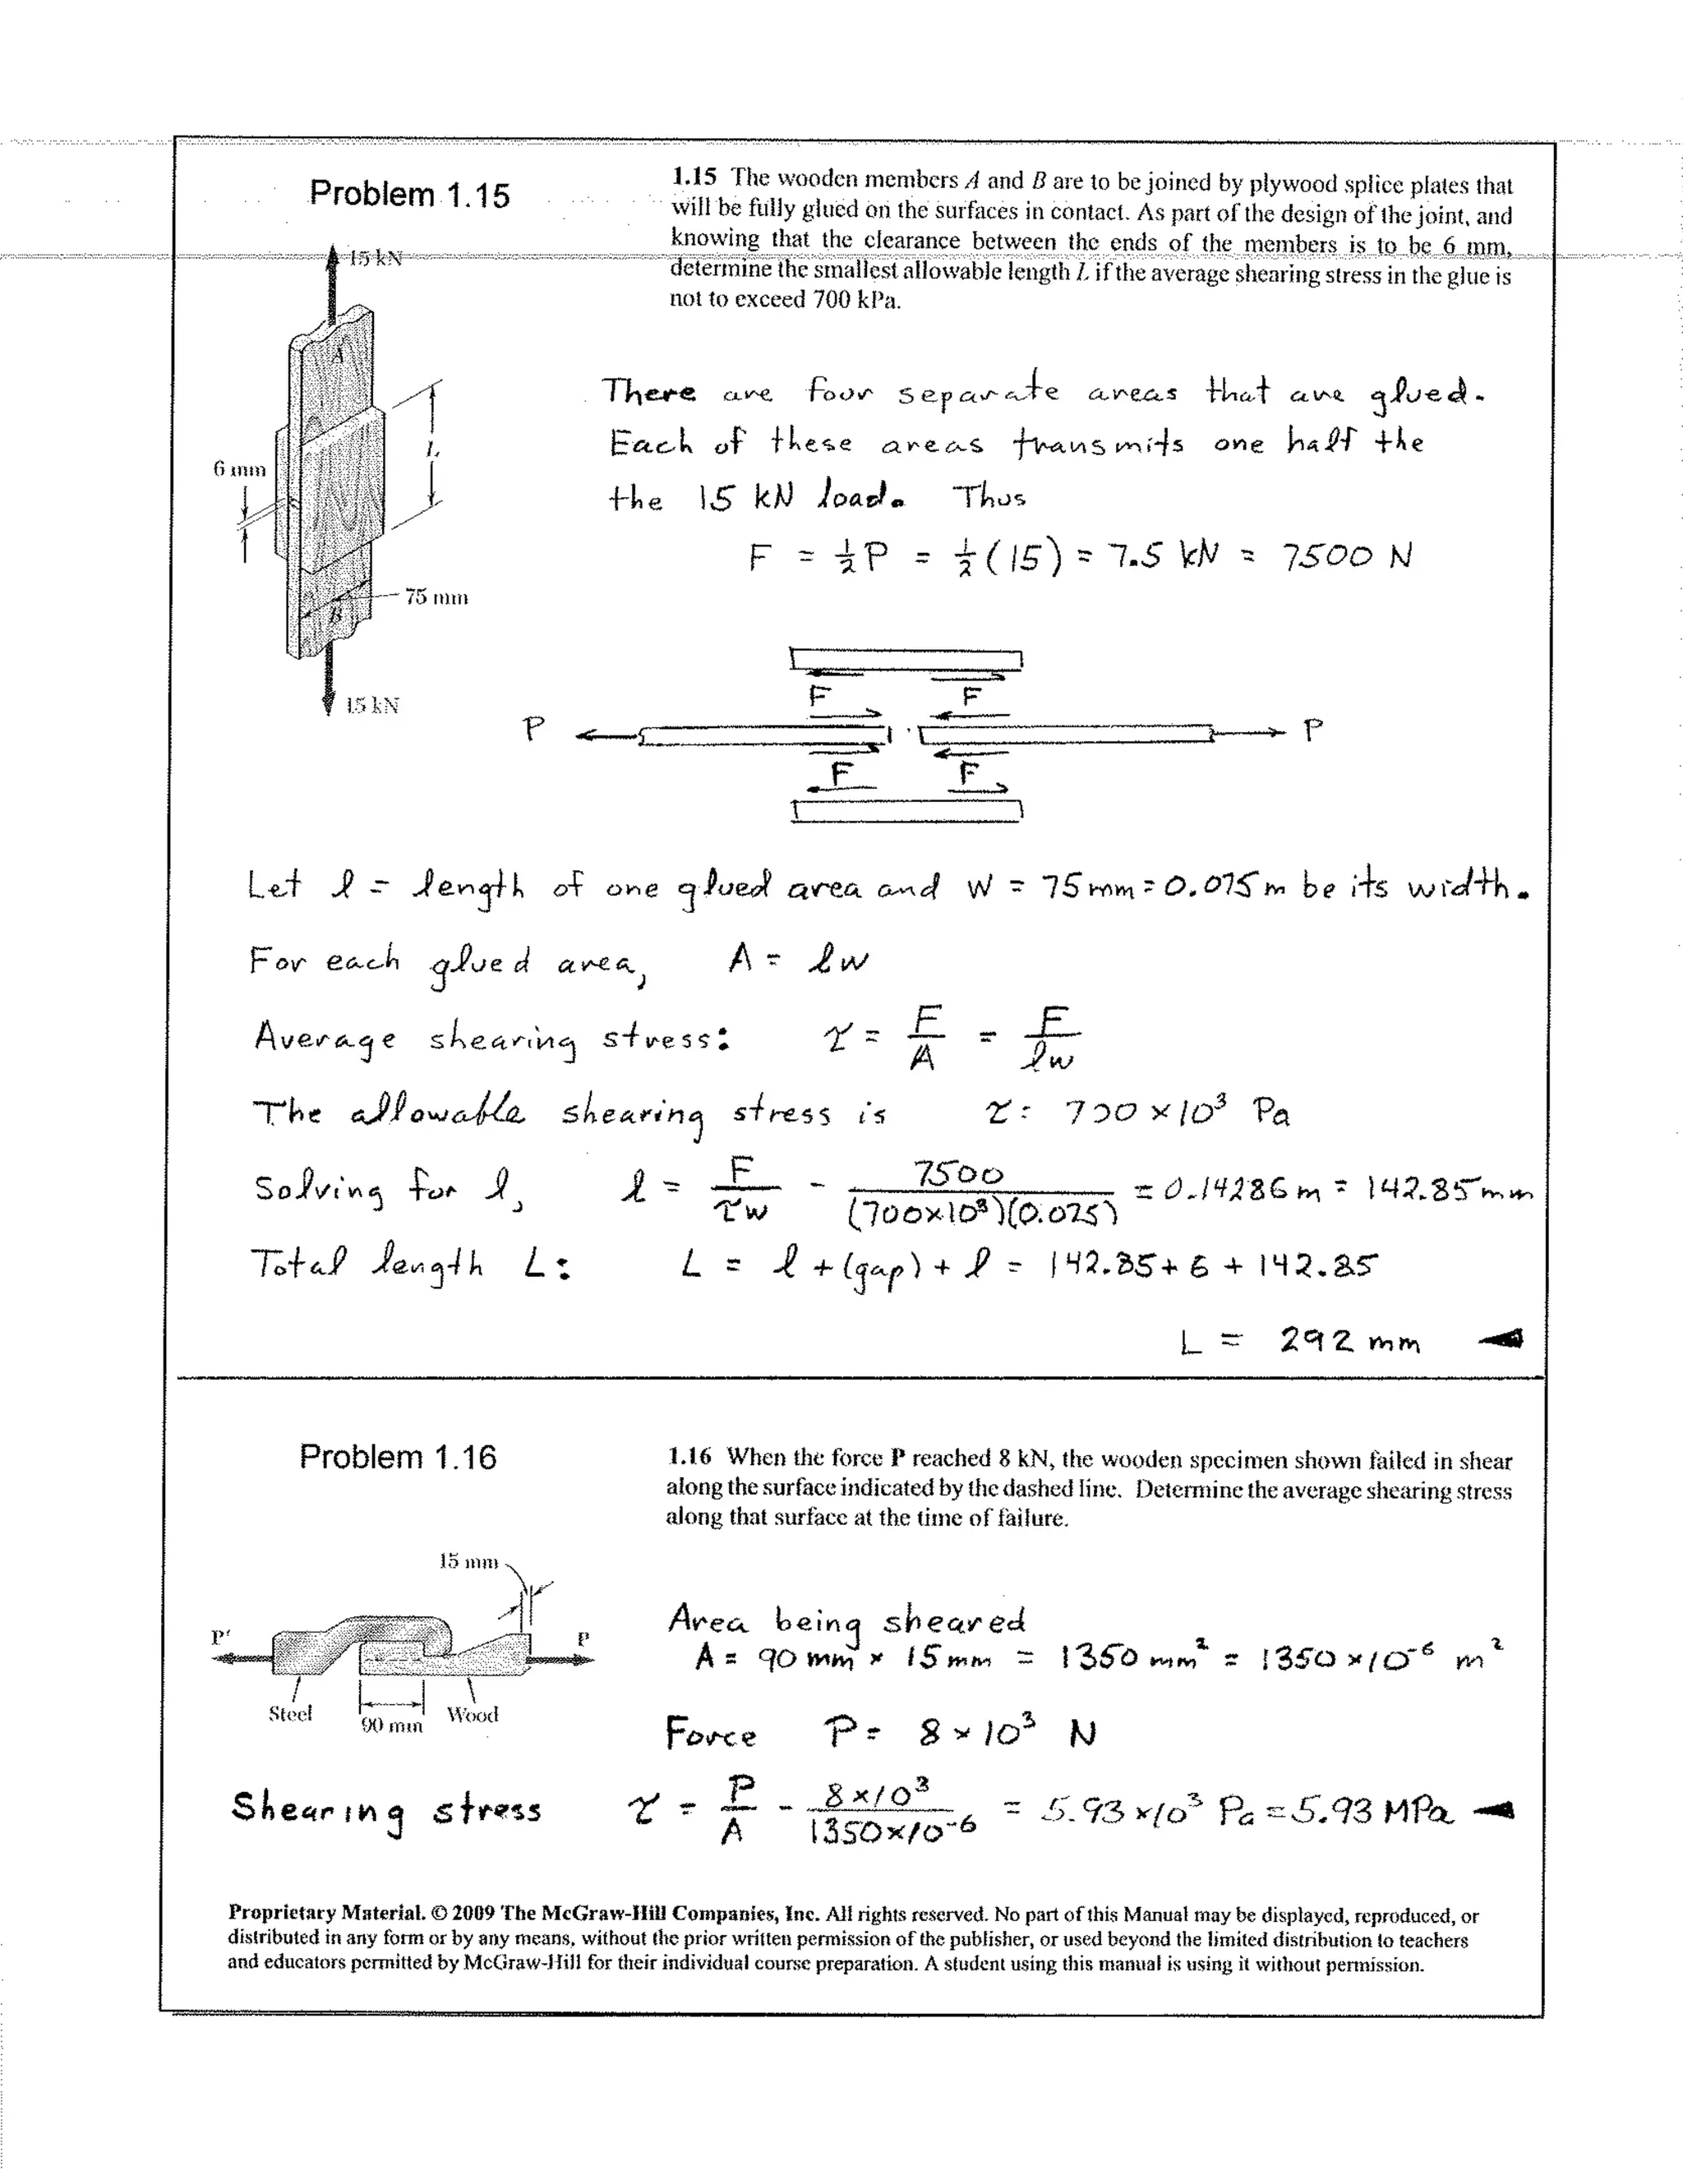 Problem 1.15
1.15 The wooden members A and B are to be joined by plywood splice plates that
will be fully glued on the surfaces in contact. As part of the design of the joint, and
knowing that the clearance between the ends of the members is to be 6 mm,
determine the smallest allowable length L if the average shearing stress in the glue is
not to exceed 700 kPa.
15 kN
A
L
6 mm
75 mm
B
15 kN
There are four separate areas that are glued.
Each of these areas transmits one half the
the 15 kN load. Thus
F = ½P = ½(15) = 7.5 kN = 7500 N
F F
P P
F F
Let l = length of one glued area and w = 75 mm = 0.075 m be its width.
For each glued area, A = lw
Average shearing stress: τ = F/A = F/lw
The allowable shearing stress is τ = 700 × 10³ Pa
Solving for l, l = F/τw - 7500/(700×10³)(0.075) = 0.14286 m = 142.85 mm
Total length L: L = l + (gap) + l = 142.85 + 6 + 142.85
L = 292 mm
Problem 1.16
1.16 When the force P reached 8 kN, the wooden specimen shown failed in shear
along the surface indicated by the dashed line. Determine the average shearing stress
along that surface at the time of failure.
15 mm
P' P
Steel 90 mm Wood
Area being sheared
A = 90 mm × 15 mm = 1350 mm² = 1350 × 10⁻⁶ m²
Force P = 8 × 10³ N
Shearing stress τ = P/A - 8×10³/1350×10⁻⁶ = 5.93 × 10³ Pa = 5.93 MPa
Proprietary Material. © 2009 The McGraw-Hill Companies, Inc. All rights reserved. No part of this Manual may be displayed, reproduced, or
distributed in any form or by any means, without the prior written permission of the publisher, or used beyond the limited distribution to teachers
and educators permitted by McGraw-Hill for their individual course preparation. A student using this manual is using it without permission.